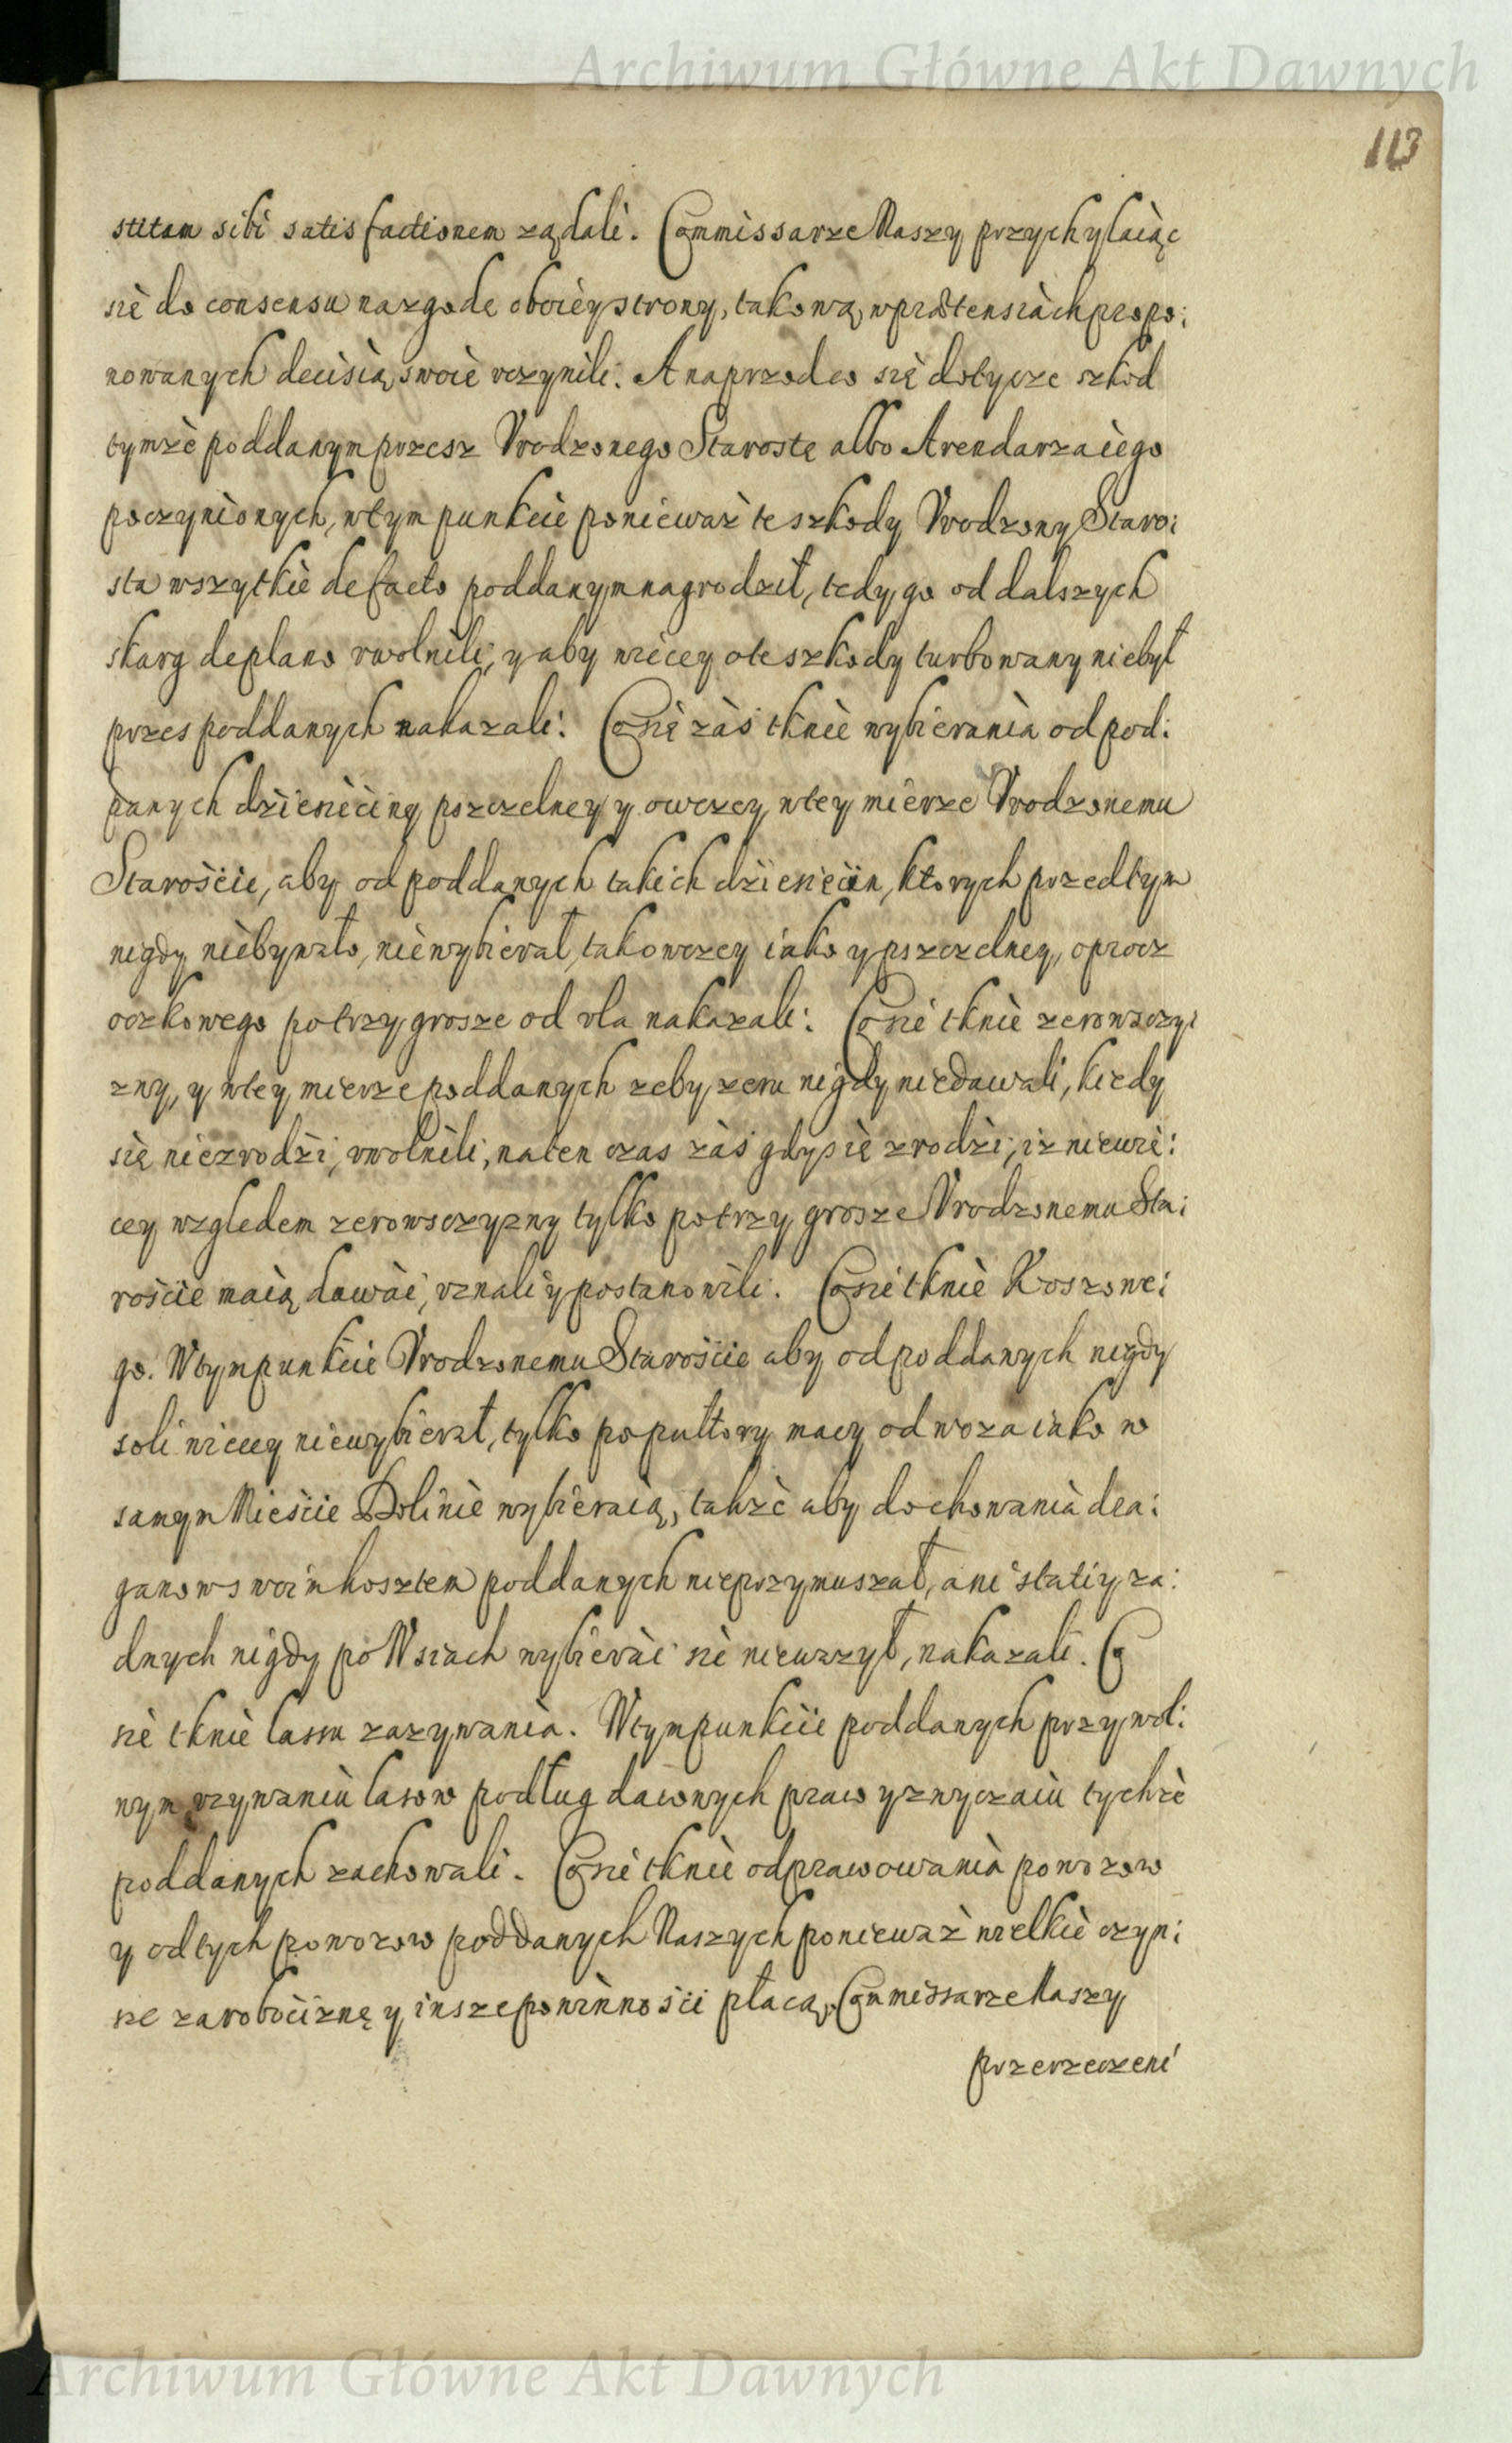 Archiwum Główne Akt Dawnych
113
stitam sibi satisfactionem ządali. Commissarze Naszy przychylaiąc
się do consensu na zgodę oboiey strony, takową w prætensiach propo:
nowanych decisią swoię vczynili. A naprzod co się dotycze szkod
tymże poddanym przesz Vrodzonego Starostę albo Arendarza iego
poczynionych, w tym punkcie ponieważ te szkody Vrodzony Staro:
sta wszytkie de facto poddanym nagrodził, tedy go od dalszych
skarg de plano vwolnili, y aby więcey o te szkody turbowany niebył
przes poddanych nakazali. Co się zaś tknie wybierania od pod:
danych dziesięciny pszczelney y owczey, w tey mierze Vrodzonemu
Staroście, aby od poddanych takich dziesięcin, ktorych przedtym
nigdy niebywało, niewybierał, tak owczey iako y pszczelney, oprocz
oczkowego po trzy grosze od vla nakazali. Co się tknie zerowszczy:
zny, y w tey mierze poddanych zeby zeru nigdy niedawali, kiedy
się niezrodzi, vwolnili, na ten czas zaś gdy się zrodzi, iz niewię:
cey względem zerowsczyzny tylko po trzy grosze Vrodzonemu Sta:
roście maią dawać, vznali y postanowili. Co się tknie Koszowe:
go. W tym punkcie Vrodzonemu Staroście aby od poddanych nigdy
soli więcey niewybierał, tylko po pułtory macy od woza iako w
samym Mieście Dolinie wybieraią, także aby do chowania dra:
ganow swoim kosztem poddanych nieprzymuszał, ani statiy za:
dnych nigdy po Wsiach wybierać się niewazył, nakazali. Co
się tknie lassu zazywania. W tym punkcie poddanych przy wol:
nym vzywaniu lasow podług dawnych praw y zwyczaiu tychże
poddanych zachowali. Co się tknie odprawowania powozow
y od tych powozow poddanych Naszych ponieważ wielkie czyn:
sze za robociznę y insze powinności płacą, Commissarze Naszy
przerzeczeni
Archiwum Główne Akt Dawnych